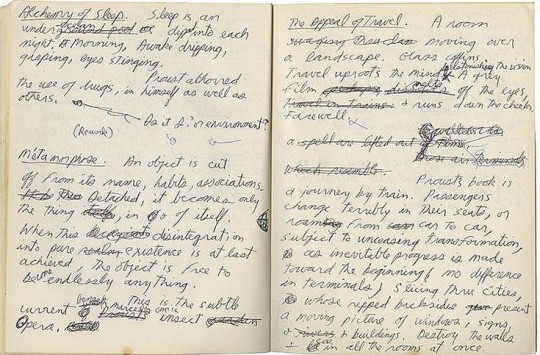 Alchemy of Sleep. Sleep is an
underground pool we dip into each
night. Morning, awake dripping,
gasping, eyes stinging.
Proust abhorred
the use of drugs, in himself as well as
others.
Is it I? or environment?
(Rewrite)
Métamorphose. An object is cut
off from its name, habits, associations.
Detached, it becomes only
the thing, in & of itself.
When this disintegration
into pure existence is at last
achieved, the object is free to
become endlessly anything.
This is the subtle
current
comic
Opera, insect
The Appeal of Travel. A room
moving over
a landscape. Glass coffins.
astonishing the vision
Travel uproots the mind. A grey
film off the eyes,
+ runs down the cheeks.
Farewell.
a spell are lifted out
which resemble
Proust's book is
a journey by train. Passengers
change terribly in their seats, or
roam from car to car,
subject to unceasing transformation,
as inevitable progress is made
toward the beginning (no difference
in terminals) slicing thru cities,
whose ripped backsides present
a moving picture of windows, signs,
+ buildings. Destroy the walls
in all the rooms at once.